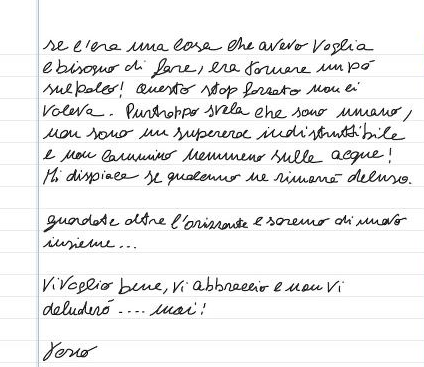 se c'era una cosa che avevo voglia
e bisogno di fare, era tornare un pó
sul palco! Questo stop forzato non ci
voleva. Purtroppo svela che sono umano,
non sono un supereroe indistruttibile
e non cammino nemmeno sulle acque!
Mi dispiace se qualcuno ne rimarrà deluso.
guardate oltre l'orizzonte e saremo di nuovo
insieme...
Vi voglio bene, vi abbraccio e non vi
deluderó .... mai!